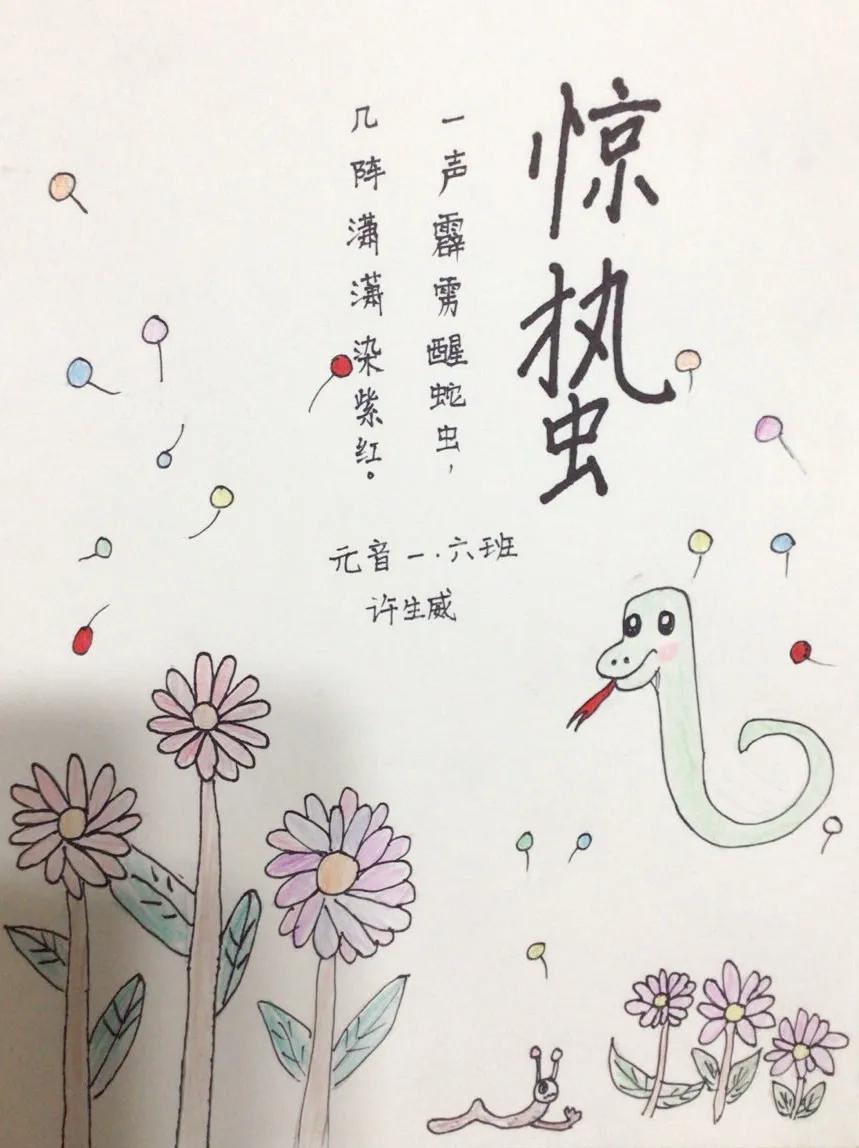 惊蛰
一声霹雳醒蛇虫，
几阵潇潇染紫红。
元音一.六班
许生威